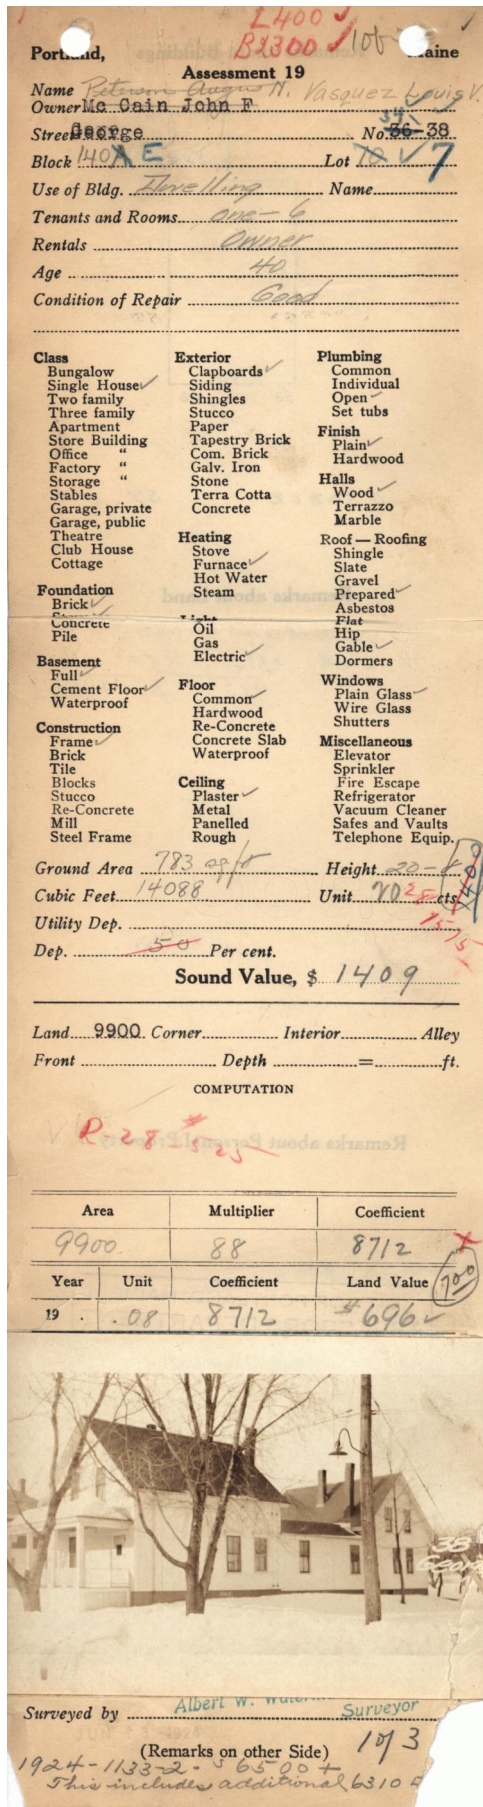 L400 ✓
B2300 ✓ 106
Portland, Maine
Assessment 19
Name Peterson August N. Vasquez Louis V.
Owner Mc Cain John F
Street George No. 36-38 34
Block 140A E Lot 10 ✓ 7
Use of Bldg. Dwelling Name
Tenants and Rooms one-6
Rentals Owner
Age 40
Condition of Repair Good
Class
Bungalow
Single House ✓
Two family
Three family
Apartment
Store Building
Office "
Factory "
Storage "
Stables
Garage, private
Garage, public
Theatre
Club House
Cottage
Foundation
Brick ✓
Concrete
Pile
Basement
Full ✓
Cement Floor ✓
Waterproof
Construction
Frame ✓
Brick
Tile
Blocks
Stucco
Re-Concrete
Mill
Steel Frame
Exterior
Clapboards ✓
Siding
Shingles
Stucco
Paper
Tapestry Brick
Com. Brick
Galv. Iron
Stone
Terra Cotta
Concrete
Heating
Stove
Furnace ✓
Hot Water
Steam
Light
Oil
Gas
Electric ✓
Floor
Common ✓
Hardwood
Re-Concrete
Concrete Slab
Waterproof
Ceiling
Plaster ✓
Metal
Panelled
Rough
Plumbing
Common
Individual
Open ✓
Set tubs
Finish
Plain ✓
Hardwood
Halls
Wood ✓
Terrazzo
Marble
Roof — Roofing
Shingle
Slate
Gravel
Prepared ✓
Asbestos
Flat
Hip
Gable ✓
Dormers
Windows
Plain Glass ✓
Wire Glass
Shutters
Miscellaneous
Elevator
Sprinkler
Fire Escape
Refrigerator
Vacuum Cleaner
Safes and Vaults
Telephone Equip.
Ground Area 783 sq ft Height 20-8 1400
Cubic Feet 14088 Unit 20 28 cts.
Utility Dep. 1575
Dep. 50 Per cent.
Sound Value, $ 1409
Land 9900 Corner Interior Alley
Front Depth = ft.
COMPUTATION
R-28 - 525
Area Multiplier Coefficient
9900 88 8712
Year Unit Coefficient Land Value 700
19 . .08 8712 $696 ✓
38
George
Surveyed by Albert W. Surveyor
(Remarks on other Side) 1 of 3
1924-1133-2- $6500 +
This includes additional 6310